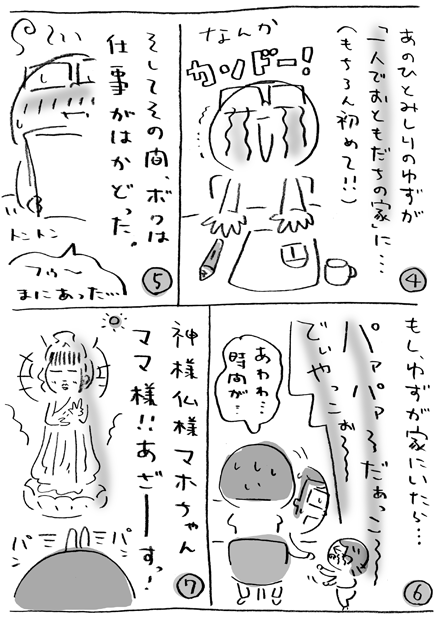 あのひとみしりのゆずが
「一人でおともだちの家」に…
(もちろん初めて!!)
なんか
カンドー!
④
そしてその間、ボクは
仕事がはかどった。
トントン
フゥ〜
まにあった…
⑤
もし、ゆずが家にいたら…
パァパァ〜ろだぁっこ〜
でぃやっこぉ〜
あわわ…
時間が…
⑥
神様仏様マホちゃん
ママ様!!あざーーすっ!
パ
パ
⑦